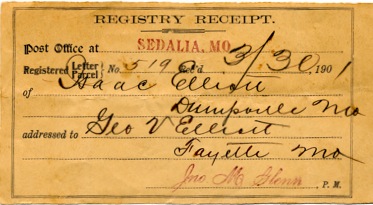 REGISTRY RECEIPT.
Post Office at SEDALIA, MO.
Registered Letter Parcel No. 519 Rec'd 3/30, 1901
of Isaac Elliott
Mo
addressed to Geo V Elliott
Fayette Mo
Jno M Glenn P. M.